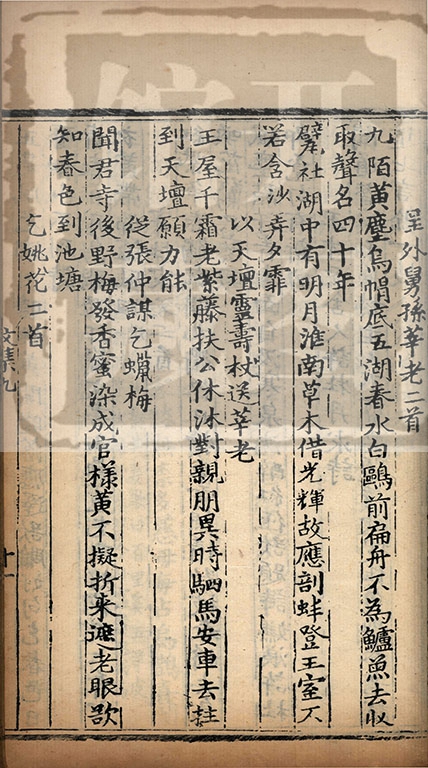 呈外舅孫莘老二首
九陌黃塵烏帽底五湖春水白鷗前扁舟不為鱸魚去収
取聲名四十年
甓社湖中有明月淮南草木借光輝故應剖蚌登王室不
若含沙弄夕霏
以天壇靈壽杖送莘老
王屋千霜老紫藤扶公休沐對親朋異時駟馬安車去拄
到天壇願力能
從張仲謀乞蠟梅
聞君寺後野梅發香蜜染成官樣黃不擬折來遮老眼欲
知春色到池塘
乞姚花二首
十一